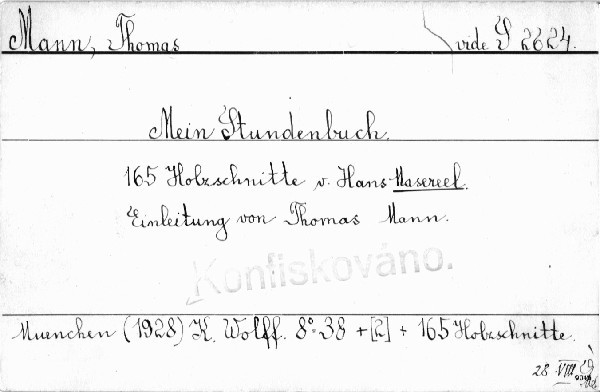 Mann, Thomas
vide S 2624.
Mein Stundenbuch.
165 Holzschnitte v. Hans Masereel.
Einleitung von Thomas Mann.
Konfiskováno.
Muenchen (1928) K. Wolff. 8° 38 + [2] + 165 Holzschnitte.
28 VIII